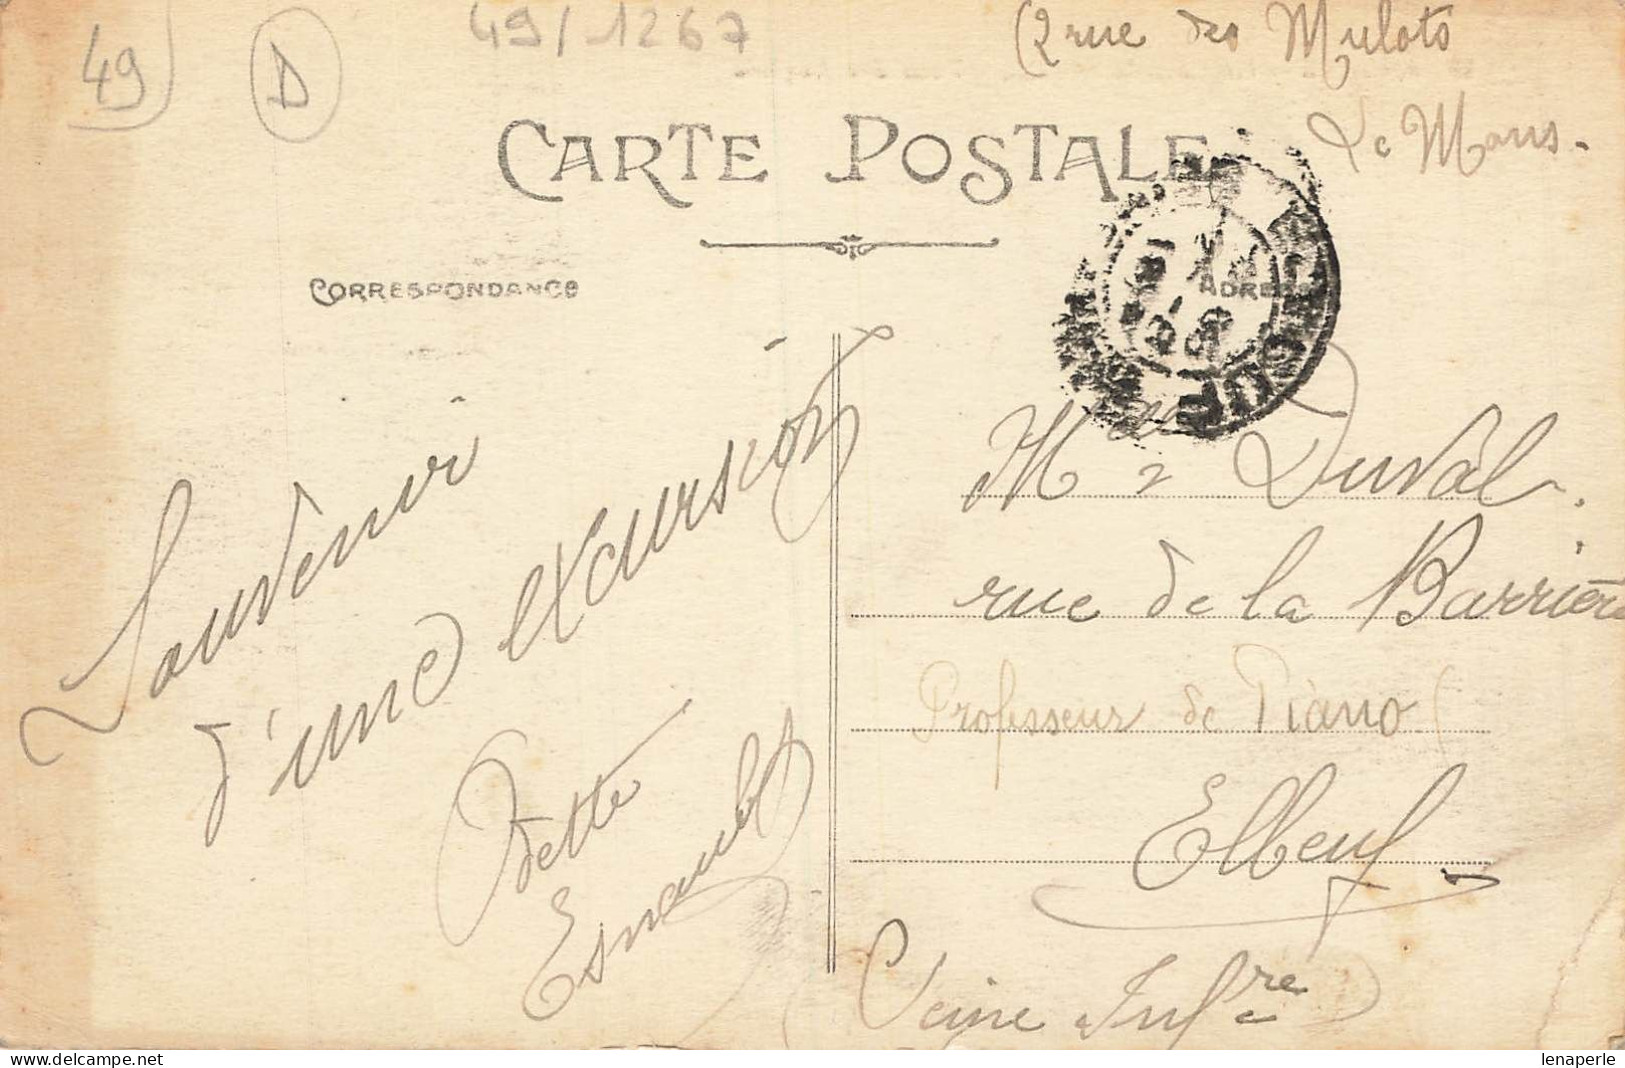 49
D
49/1267
(2 rue des Mulots
Le Mans.
CARTE POSTALE
CORRESPONDANCE
ADRE
Souvenir
d'une excursion
Odette
Esnault
Melle Duval.
rue de la Barrière
Professeur de Piano
Elbeuf
Seine Infre
lenaperle